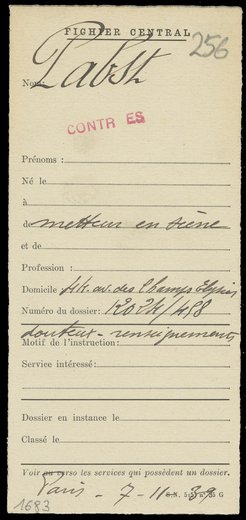 FICHIER CENTRAL
256
Nom: Pabst
CONTR ES
Prénoms :
Né le
à
de metteur en scène
et de
Profession :
Domicile 44. av. des Champs Elysées
Numéro du dossier: K2024/488
douteux - renseignements
Motif de l'instruction:
Service intéressé:
Dossier en instance le
Classé le
Voir au verso les services qui possèdent un dossier.
Paris - 7-11-39
1683